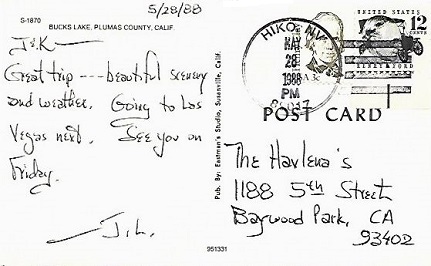 5/28/88
S-1870
BUCKS LAKE, PLUMAS COUNTY, CALIF.
J&K—
Great trip --- beautiful scenery
and weather. Going to Las
Vegas next. See you on
Friday.
— J.L.
951331
Pub. By: Eastman's Studio, Susanville, Calif.
HIKO, NV
MAY
28
1988
PM
UNITED STATES
12
CENTS
POST CARD
The Havlena's
1188 5th Street
Baywood Park, CA
93402